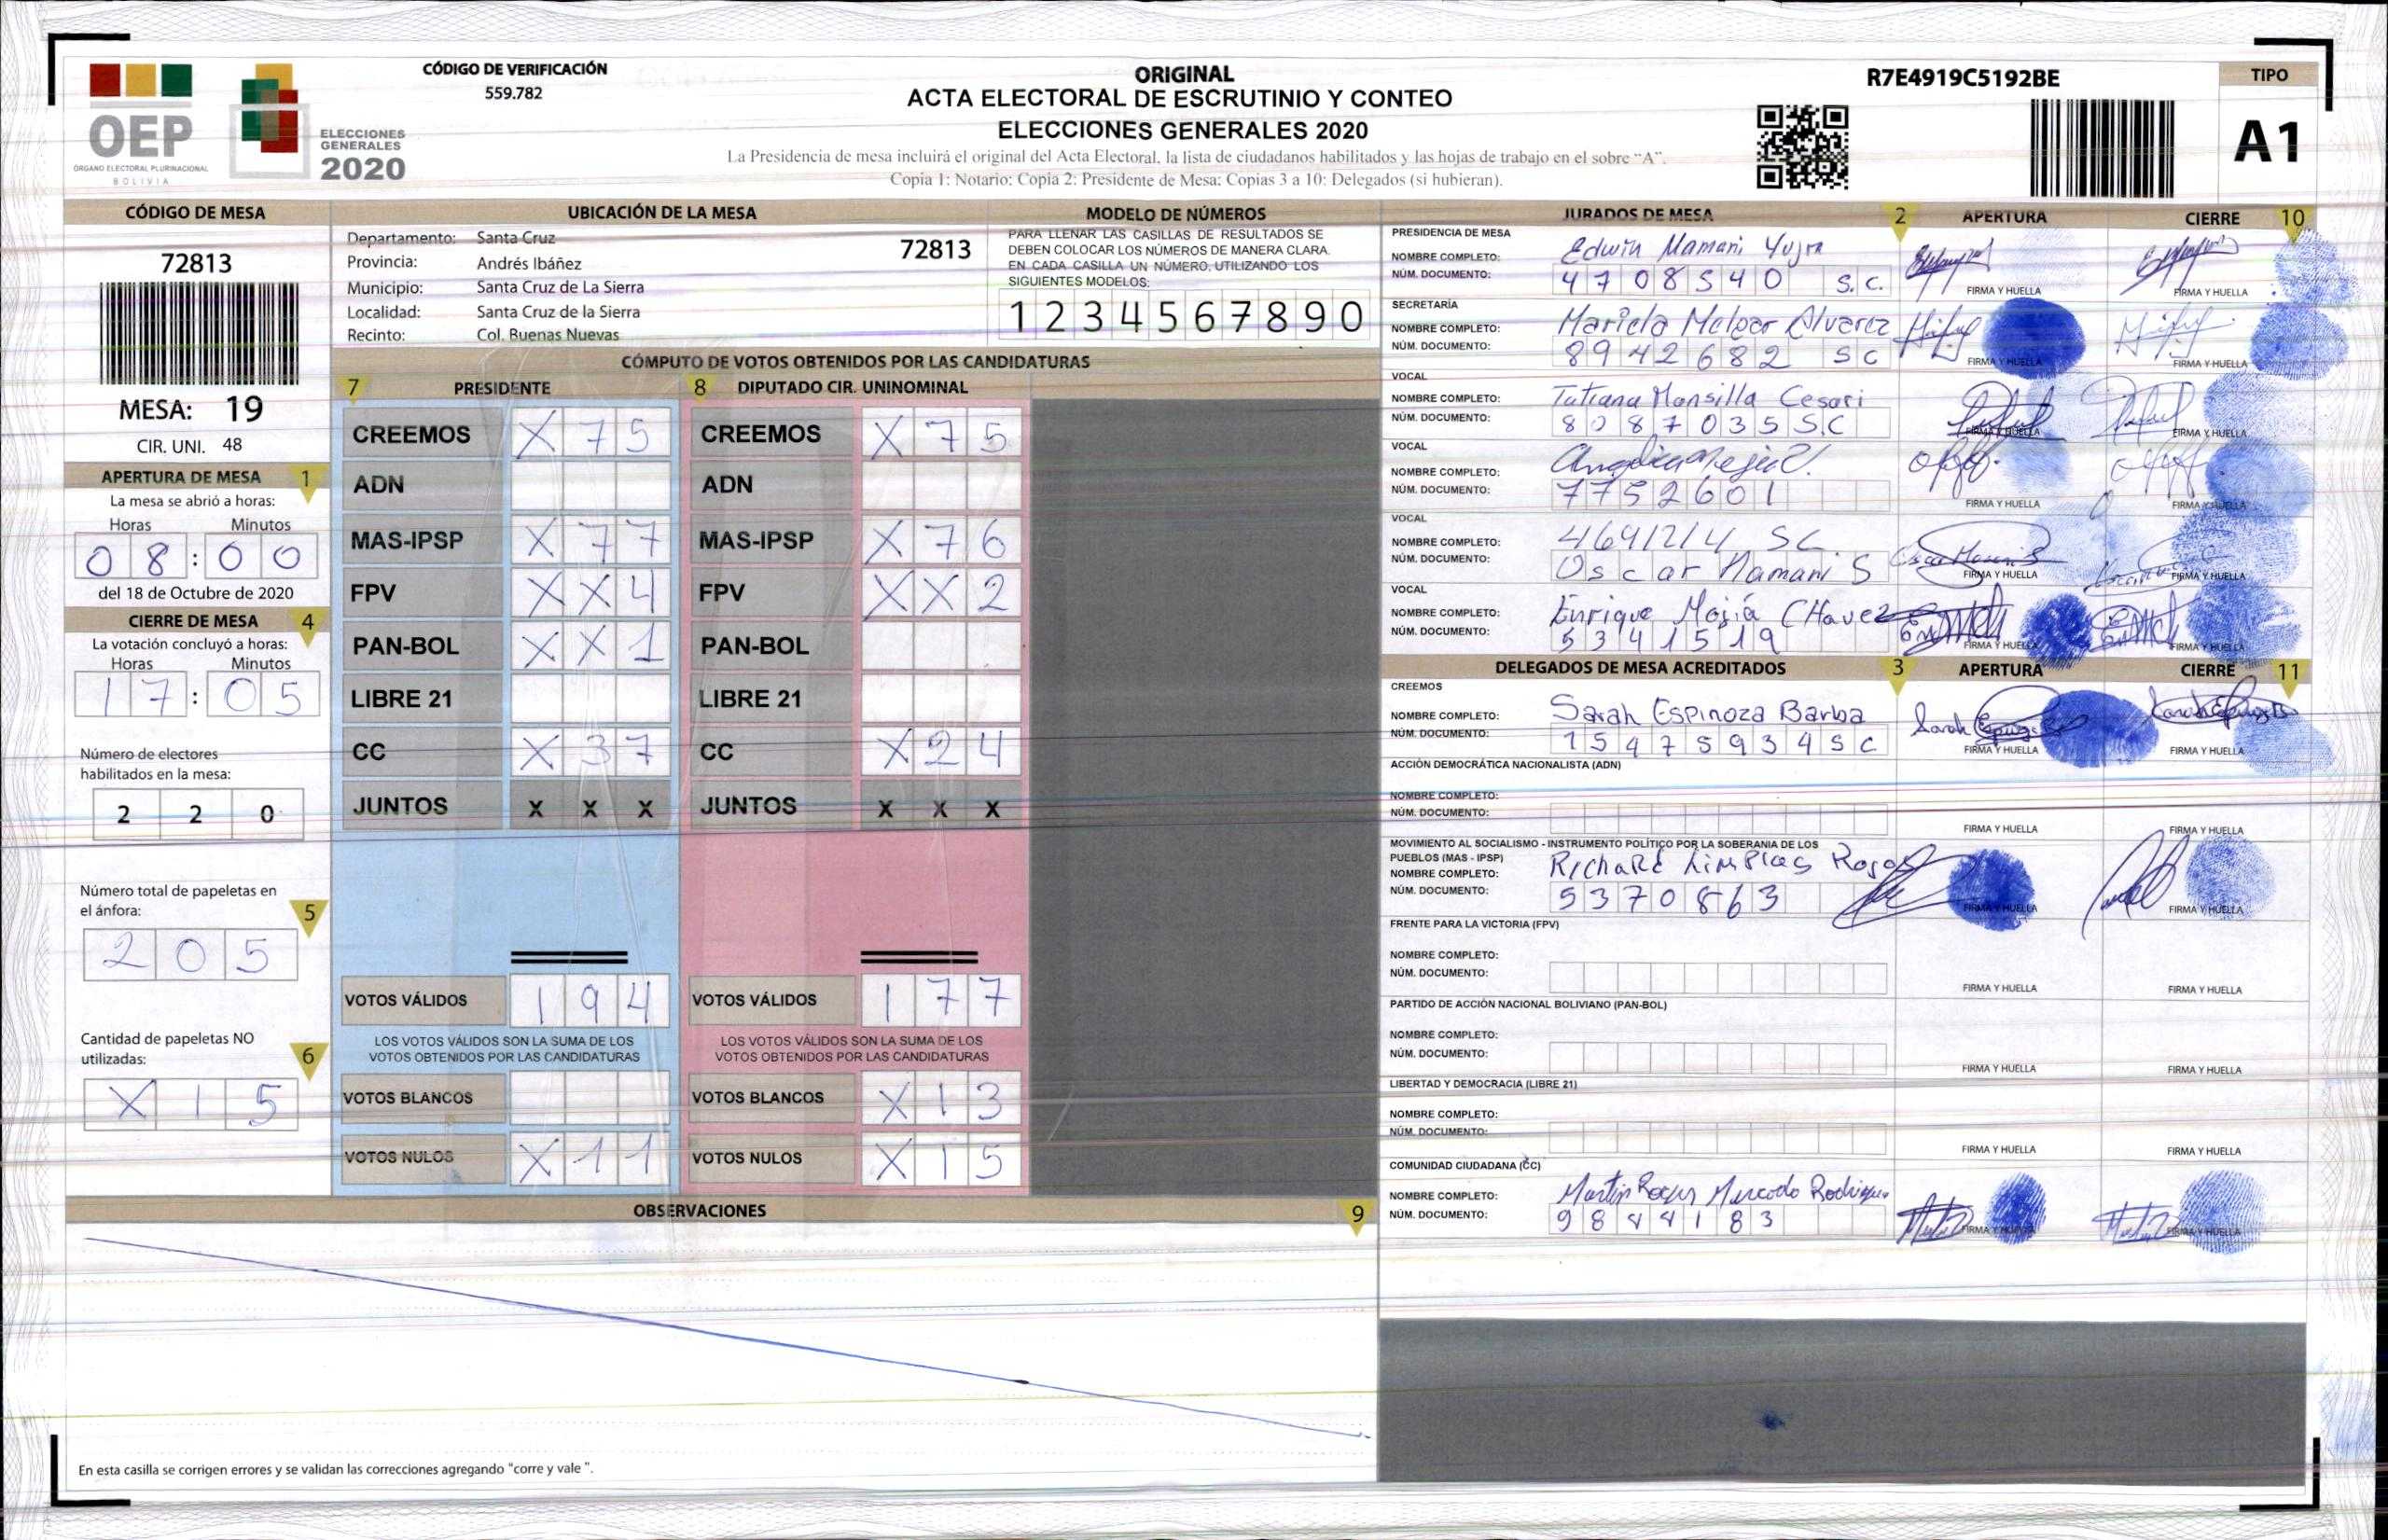 CÓDIGO DE VERIFICACIÓN
559.782
ORIGINAL
ACTA ELECTORAL DE ESCRUTINIO Y CONTEO
ELECCIONES GENERALES 2020
La Presidencia de mesa incluirá el original del Acta Electoral, la lista de ciudadanos habilitados y las hojas de trabajo en el sobre "A".
Copia 1: Notario; Copia 2: Presidente de Mesa; Copias 3 a 10: Delegados (si hubieran).
R7E4919C5192BE
TIPO
A1
OEP
ÓRGANO ELECTORAL PLURINACIONAL
BOLIVIA
ELECCIONES
GENERALES
2020
CÓDIGO DE MESA
72813
MESA: 19
CIR. UNI. 48
APERTURA DE MESA 1
La mesa se abrió a horas:
Horas Minutos
08:00
del 18 de Octubre de 2020
CIERRE DE MESA 4
La votación concluyó a horas:
Horas Minutos
17:05
Número de electores
habilitados en la mesa:
2 2 0
Número total de papeletas en
el ánfora:
5
2 0 5
Cantidad de papeletas NO
utilizadas:
6
X 1 5
UBICACIÓN DE LA MESA
Departamento: Santa Cruz
72813
Provincia: Andrés Ibáñez
Municipio: Santa Cruz de La Sierra
Localidad: Santa Cruz de la Sierra
Recinto: Col. Buenas Nuevas
MODELO DE NÚMEROS
PARA LLENAR LAS CASILLAS DE RESULTADOS SE
DEBEN COLOCAR LOS NÚMEROS DE MANERA CLARA
EN CADA CASILLA UN NÚMERO, UTILIZANDO LOS
SIGUIENTES MODELOS:
1 2 3 4 5 6 7 8 9 0
CÓMPUTO DE VOTOS OBTENIDOS POR LAS CANDIDATURAS
7 PRESIDENTE 8 DIPUTADO CIR. UNINOMINAL
CREEMOS X 7 5 CREEMOS X 7 5
ADN ADN
MAS-IPSP X 7 7 MAS-IPSP X 7 6
FPV X X 4 FPV X X 2
PAN-BOL X X 1 PAN-BOL
LIBRE 21 LIBRE 21
CC X 3 7 CC X 2 4
JUNTOS X X X JUNTOS X X X
VOTOS VÁLIDOS 1 9 4 VOTOS VÁLIDOS 1 7 7
LOS VOTOS VÁLIDOS SON LA SUMA DE LOS
VOTOS OBTENIDOS POR LAS CANDIDATURAS
LOS VOTOS VÁLIDOS SON LA SUMA DE LOS
VOTOS OBTENIDOS POR LAS CANDIDATURAS
VOTOS BLANCOS VOTOS BLANCOS X 1 3
VOTOS NULOS X 1 1 VOTOS NULOS X 1 5
OBSERVACIONES 9
En esta casilla se corrigen errores y se validan las correcciones agregando "corre y vale ".
JURADOS DE MESA 2 APERTURA CIERRE 10
PRESIDENCIA DE MESA
NOMBRE COMPLETO: Edwin Mamani Yujra
NÚM. DOCUMENTO: 4708540 S.C.
FIRMA Y HUELLA FIRMA Y HUELLA
SECRETARÍA
NOMBRE COMPLETO: Mariela Melgar Alvarez
NÚM. DOCUMENTO: 8942682 SC
FIRMA Y HUELLA FIRMA Y HUELLA
VOCAL
NOMBRE COMPLETO: Tatiana Mansilla Cesari
NÚM. DOCUMENTO: 8087035 S.C
FIRMA Y HUELLA FIRMA Y HUELLA
VOCAL
NOMBRE COMPLETO: Angelica
NÚM. DOCUMENTO: 7752601
FIRMA Y HUELLA FIRMA Y HUELLA
VOCAL
NOMBRE COMPLETO: 4691214 SC.
NÚM. DOCUMENTO: Oscar Mamani S
FIRMA Y HUELLA FIRMA Y HUELLA
VOCAL
NOMBRE COMPLETO: Enrique Mejía CHavez
NÚM. DOCUMENTO: 5341519
FIRMA Y HUELLA FIRMA Y HUELLA
DELEGADOS DE MESA ACREDITADOS 3 APERTURA CIERRE 11
CREEMOS
NOMBRE COMPLETO: Sarah Espinoza Barba
NÚM. DOCUMENTO: 15475934SC
FIRMA Y HUELLA FIRMA Y HUELLA
ACCIÓN DEMOCRÁTICA NACIONALISTA (ADN)
NOMBRE COMPLETO:
NÚM. DOCUMENTO:
FIRMA Y HUELLA FIRMA Y HUELLA
MOVIMIENTO AL SOCIALISMO - INSTRUMENTO POLÍTICO POR LA SOBERANIA DE LOS
PUEBLOS (MAS - IPSP)
NOMBRE COMPLETO: Richard Limpias Rojas
NÚM. DOCUMENTO: 5370863
FIRMA Y HUELLA FIRMA Y HUELLA
FRENTE PARA LA VICTORIA (FPV)
NOMBRE COMPLETO:
NÚM. DOCUMENTO:
FIRMA Y HUELLA FIRMA Y HUELLA
PARTIDO DE ACCIÓN NACIONAL BOLIVIANO (PAN-BOL)
NOMBRE COMPLETO:
NÚM. DOCUMENTO:
FIRMA Y HUELLA FIRMA Y HUELLA
LIBERTAD Y DEMOCRACIA (LIBRE 21)
NOMBRE COMPLETO:
NÚM. DOCUMENTO:
FIRMA Y HUELLA FIRMA Y HUELLA
COMUNIDAD CIUDADANA (CC)
NOMBRE COMPLETO: Martin Mercado Rodriguez
NÚM. DOCUMENTO: 9844183
FIRMA Y HUELLA FIRMA Y HUELLA